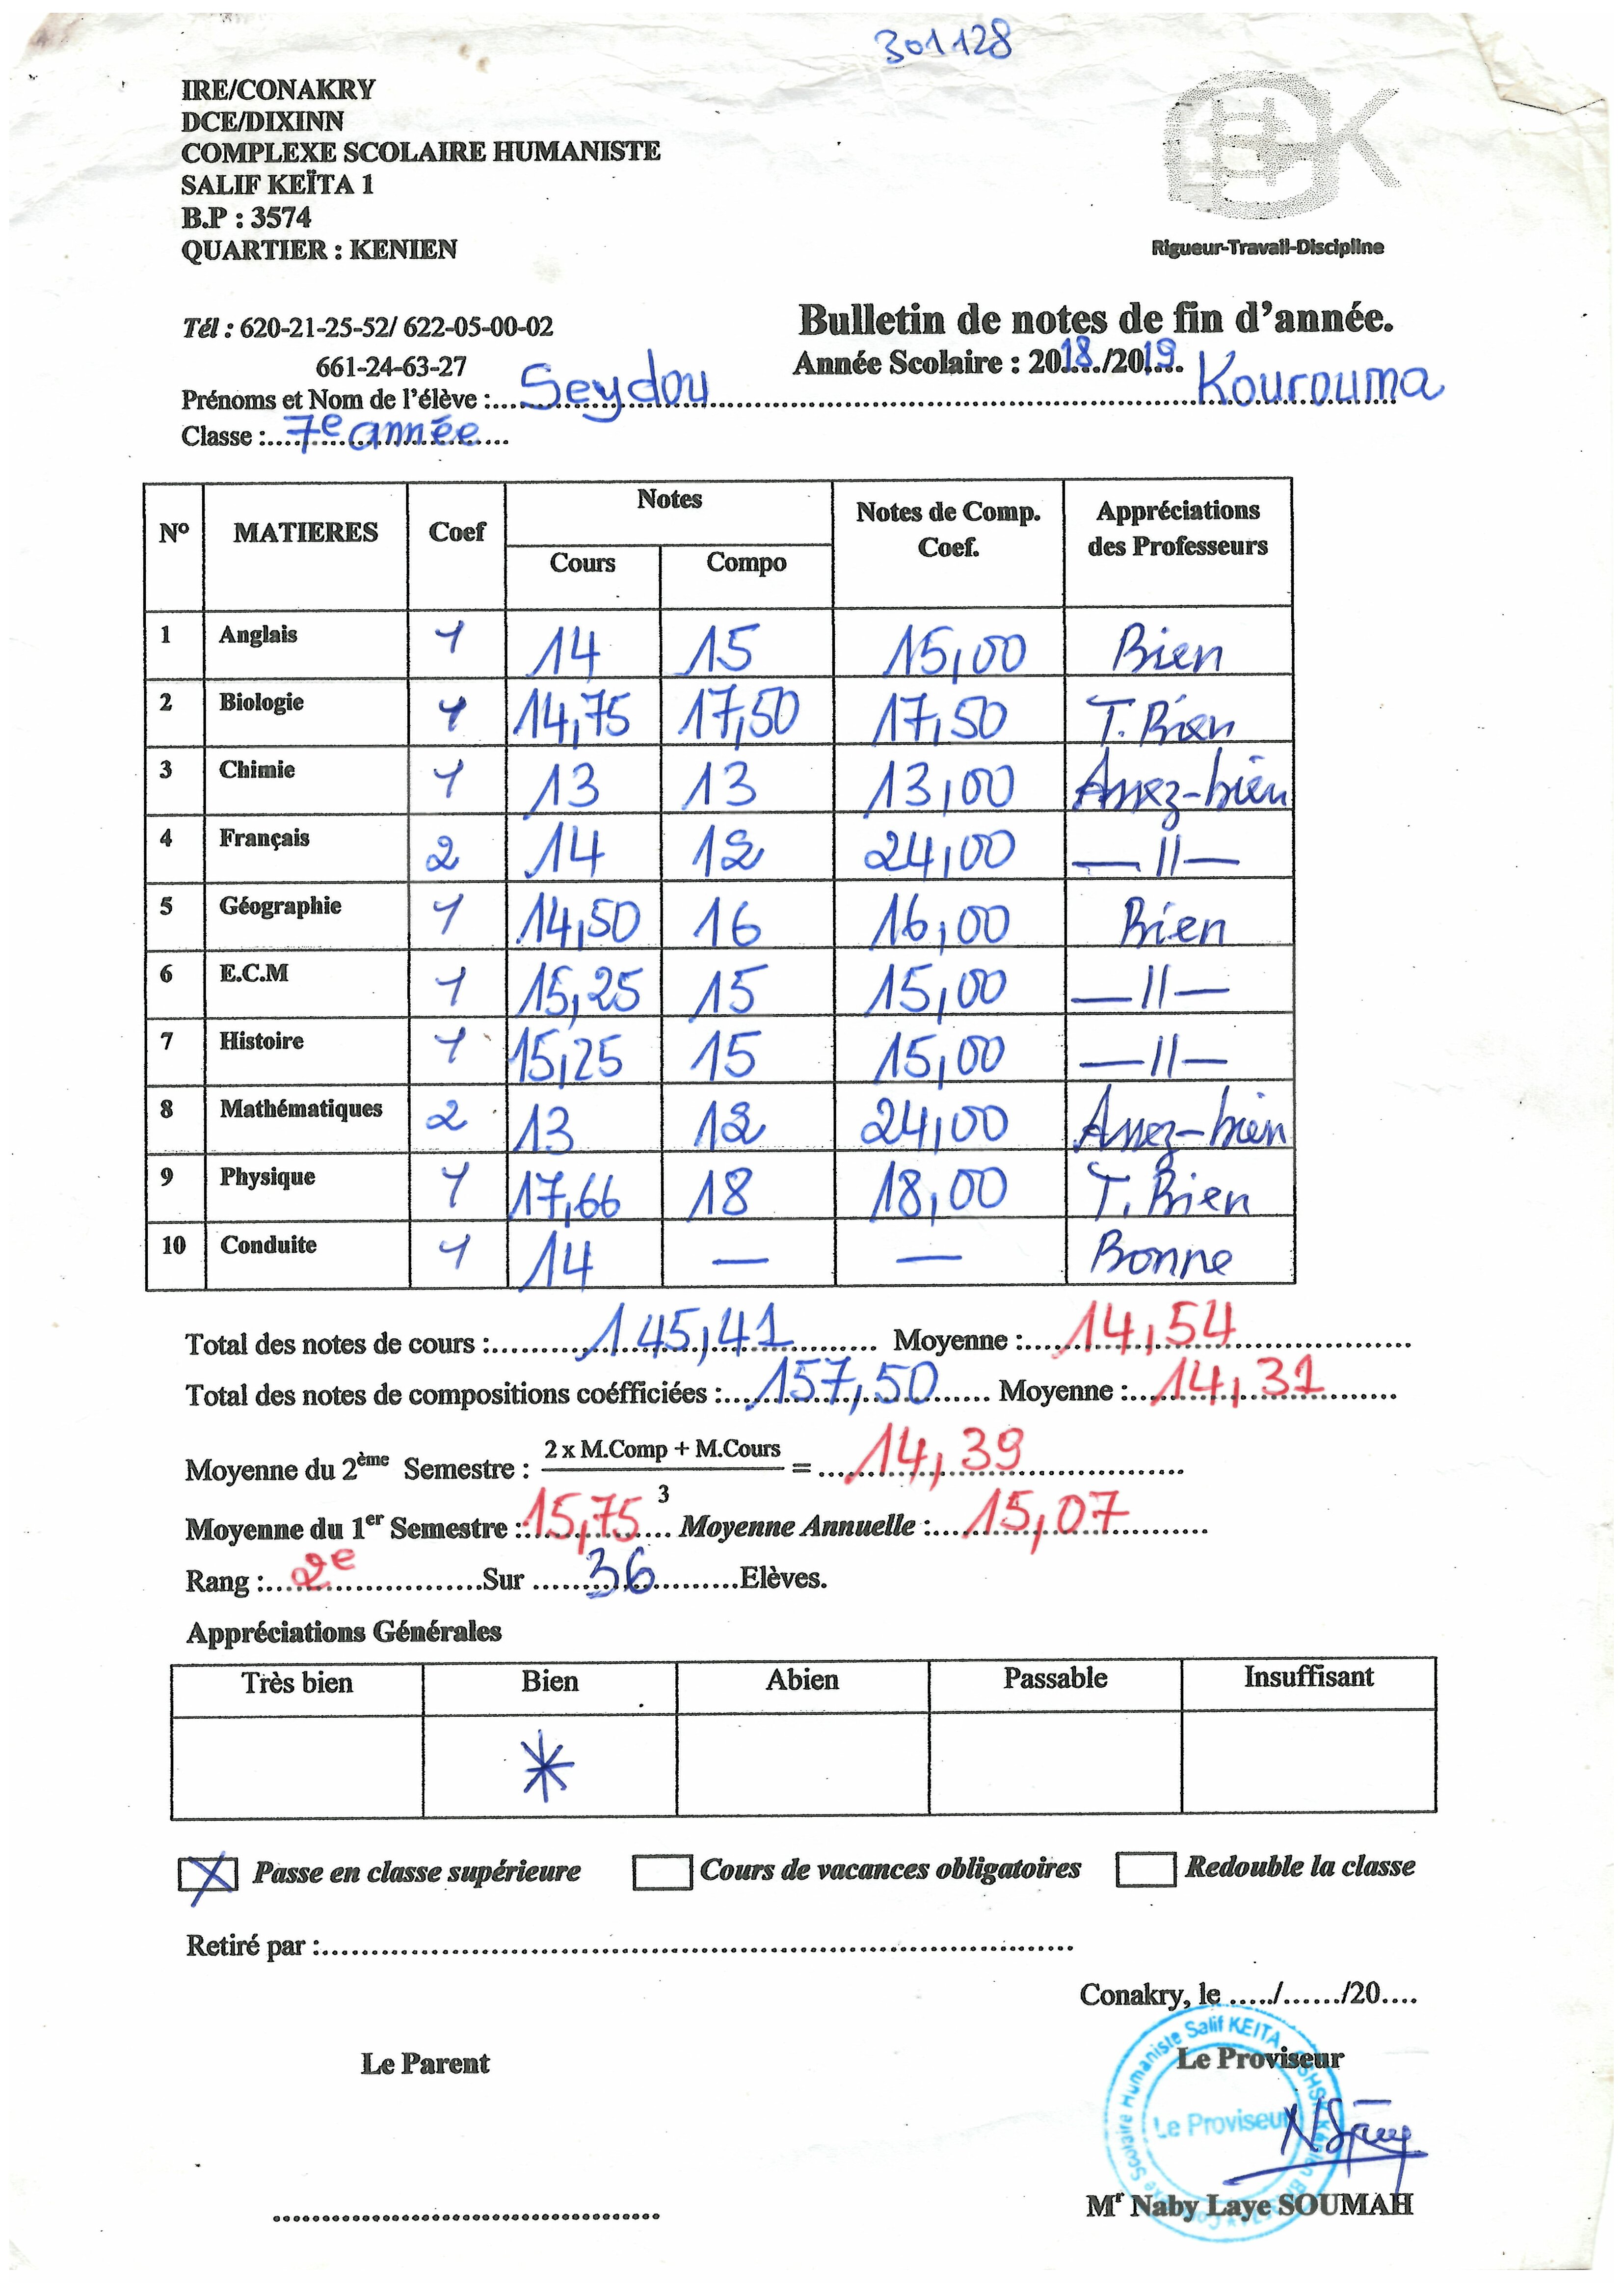 301128
IRE/CONAKRY
DCE/DIXINN
COMPLEXE SCOLAIRE HUMANISTE
SALIF KEÏTA 1
B.P : 3574
QUARTIER : KENIEN
Rigueur-Travail-Discipline
Tél : 620-21-25-52/ 622-05-00-02
661-24-63-27
Bulletin de notes de fin d'année.
Année Scolaire : 2018../2019...
Prénoms et Nom de l'élève :... Seydou ... Kourouma
Classe :... 7e année ...
N° MATIERES Coef Notes Notes de Comp. Coef. Appréciations des Professeurs
Cours Compo
1 Anglais 1 14 15 15,00 Bien
2 Biologie 1 14,75 17,50 17,50 T. Bien
3 Chimie 1 13 13 13,00 Assez-bien
4 Français 2 14 12 24,00 —//—
5 Géographie 1 14,50 16 16,00 Bien
6 E.C.M 1 15,25 15 15,00 —//—
7 Histoire 1 15,25 15 15,00 —//—
8 Mathématiques 2 13 12 24,00 Assez-bien
9 Physique 1 17,66 18 18,00 T. Bien
10 Conduite 1 14 — — Bonne
Total des notes de cours :... 145,41 ... Moyenne :... 14,54 ...
Total des notes de compositions coéfficiées :... 157,50 ... Moyenne :... 14,31 ...
Moyenne du 2ème Semestre : 2 x M.Comp + M.Cours / 3 = ... 14,39 ...
Moyenne du 1er Semestre : 15,75 ... Moyenne Annuelle :... 15,07 ...
Rang :... 2e ... Sur ... 36 ... Elèves.
Appréciations Générales
Très bien Bien Abien Passable Insuffisant
*
X Passe en classe supérieure Cours de vacances obligatoires Redouble la classe
Retiré par :...
Conakry, le ...../....../20....
Le Parent Le Proviseur
Le Proviseur
Mr Naby Laye SOUMAH